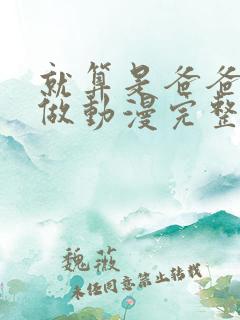 就算是爸爸
做動漫完整
魏薇
未经同意禁止转载